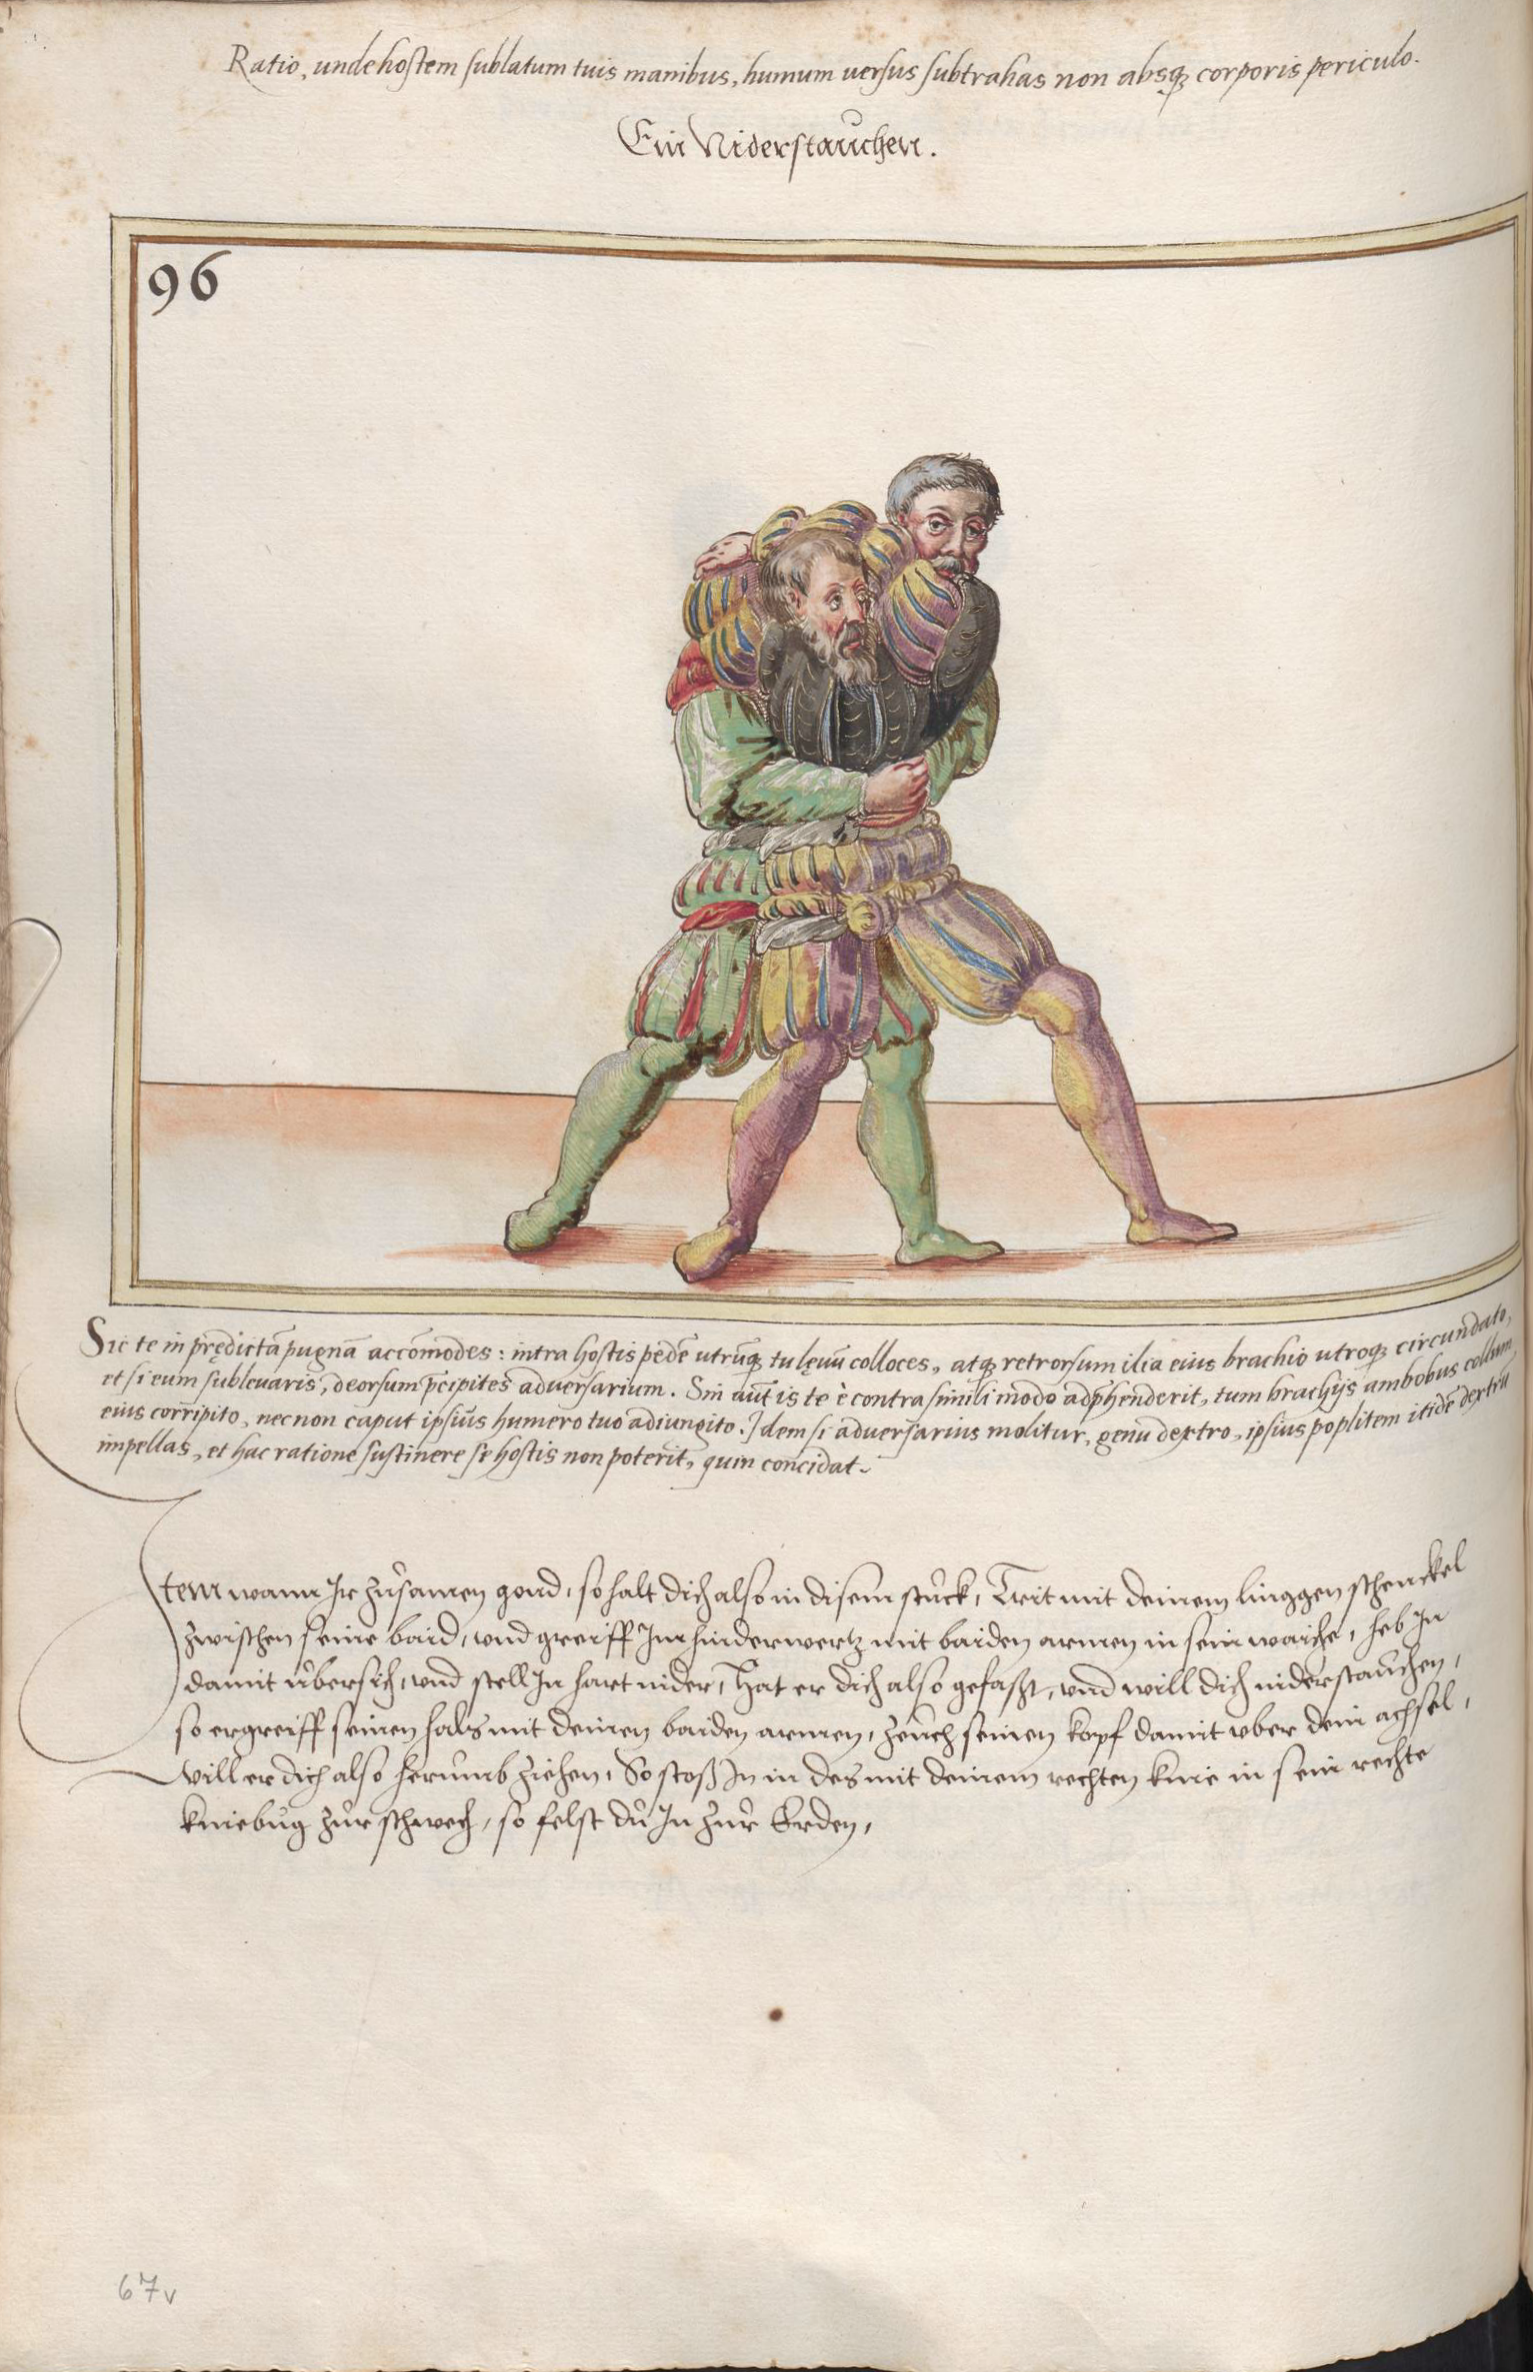 Ratio, unde hostem sublatum tuis manibus, humum versus subtrahas non absq; corporis periculo.
Ein Niderstauchen.
96
Sic te in prędictā pugnā accōmodes: intra hostis pedē utrūq; tu lęvū colloces, atq; retrorsum ilia eius brachio utroq; circundato,
et si eum sublevaris, deorsum p̄cipites adversarium. Sin aūt is te è contra simili modo adp̄henderit, tum brachijs ambobus collum
eius corripito, necnon caput ipsius humero tuo adiungito. Idem si adversarius molitur, genu dextro, ipsius poplitem itidē dextrū
impellas, et hac ratione sustinere se hostis non poterit, quin concidat.
Item wann Ir zůsamen gond, so halt dich also in disem stuck, Trit mit deinem linggen schenckel
zwischen seine baid, und greiff Im hinderwertz mit baiden armen in sein waiche, heb In
damit ubersich, und stell In hart nider, Hat er dich also gefaßt, und will dich niderstauchen,
so ergreiff seinen hals mit deinen baiden armen, zeuch seinen kopf damit uber dein achsel,
will er dich also herumb ziehen, So stoß In in des mit deinem rechten knie in sein rechte
kniebug zur schwech, so felst du In zur Erden,
67v